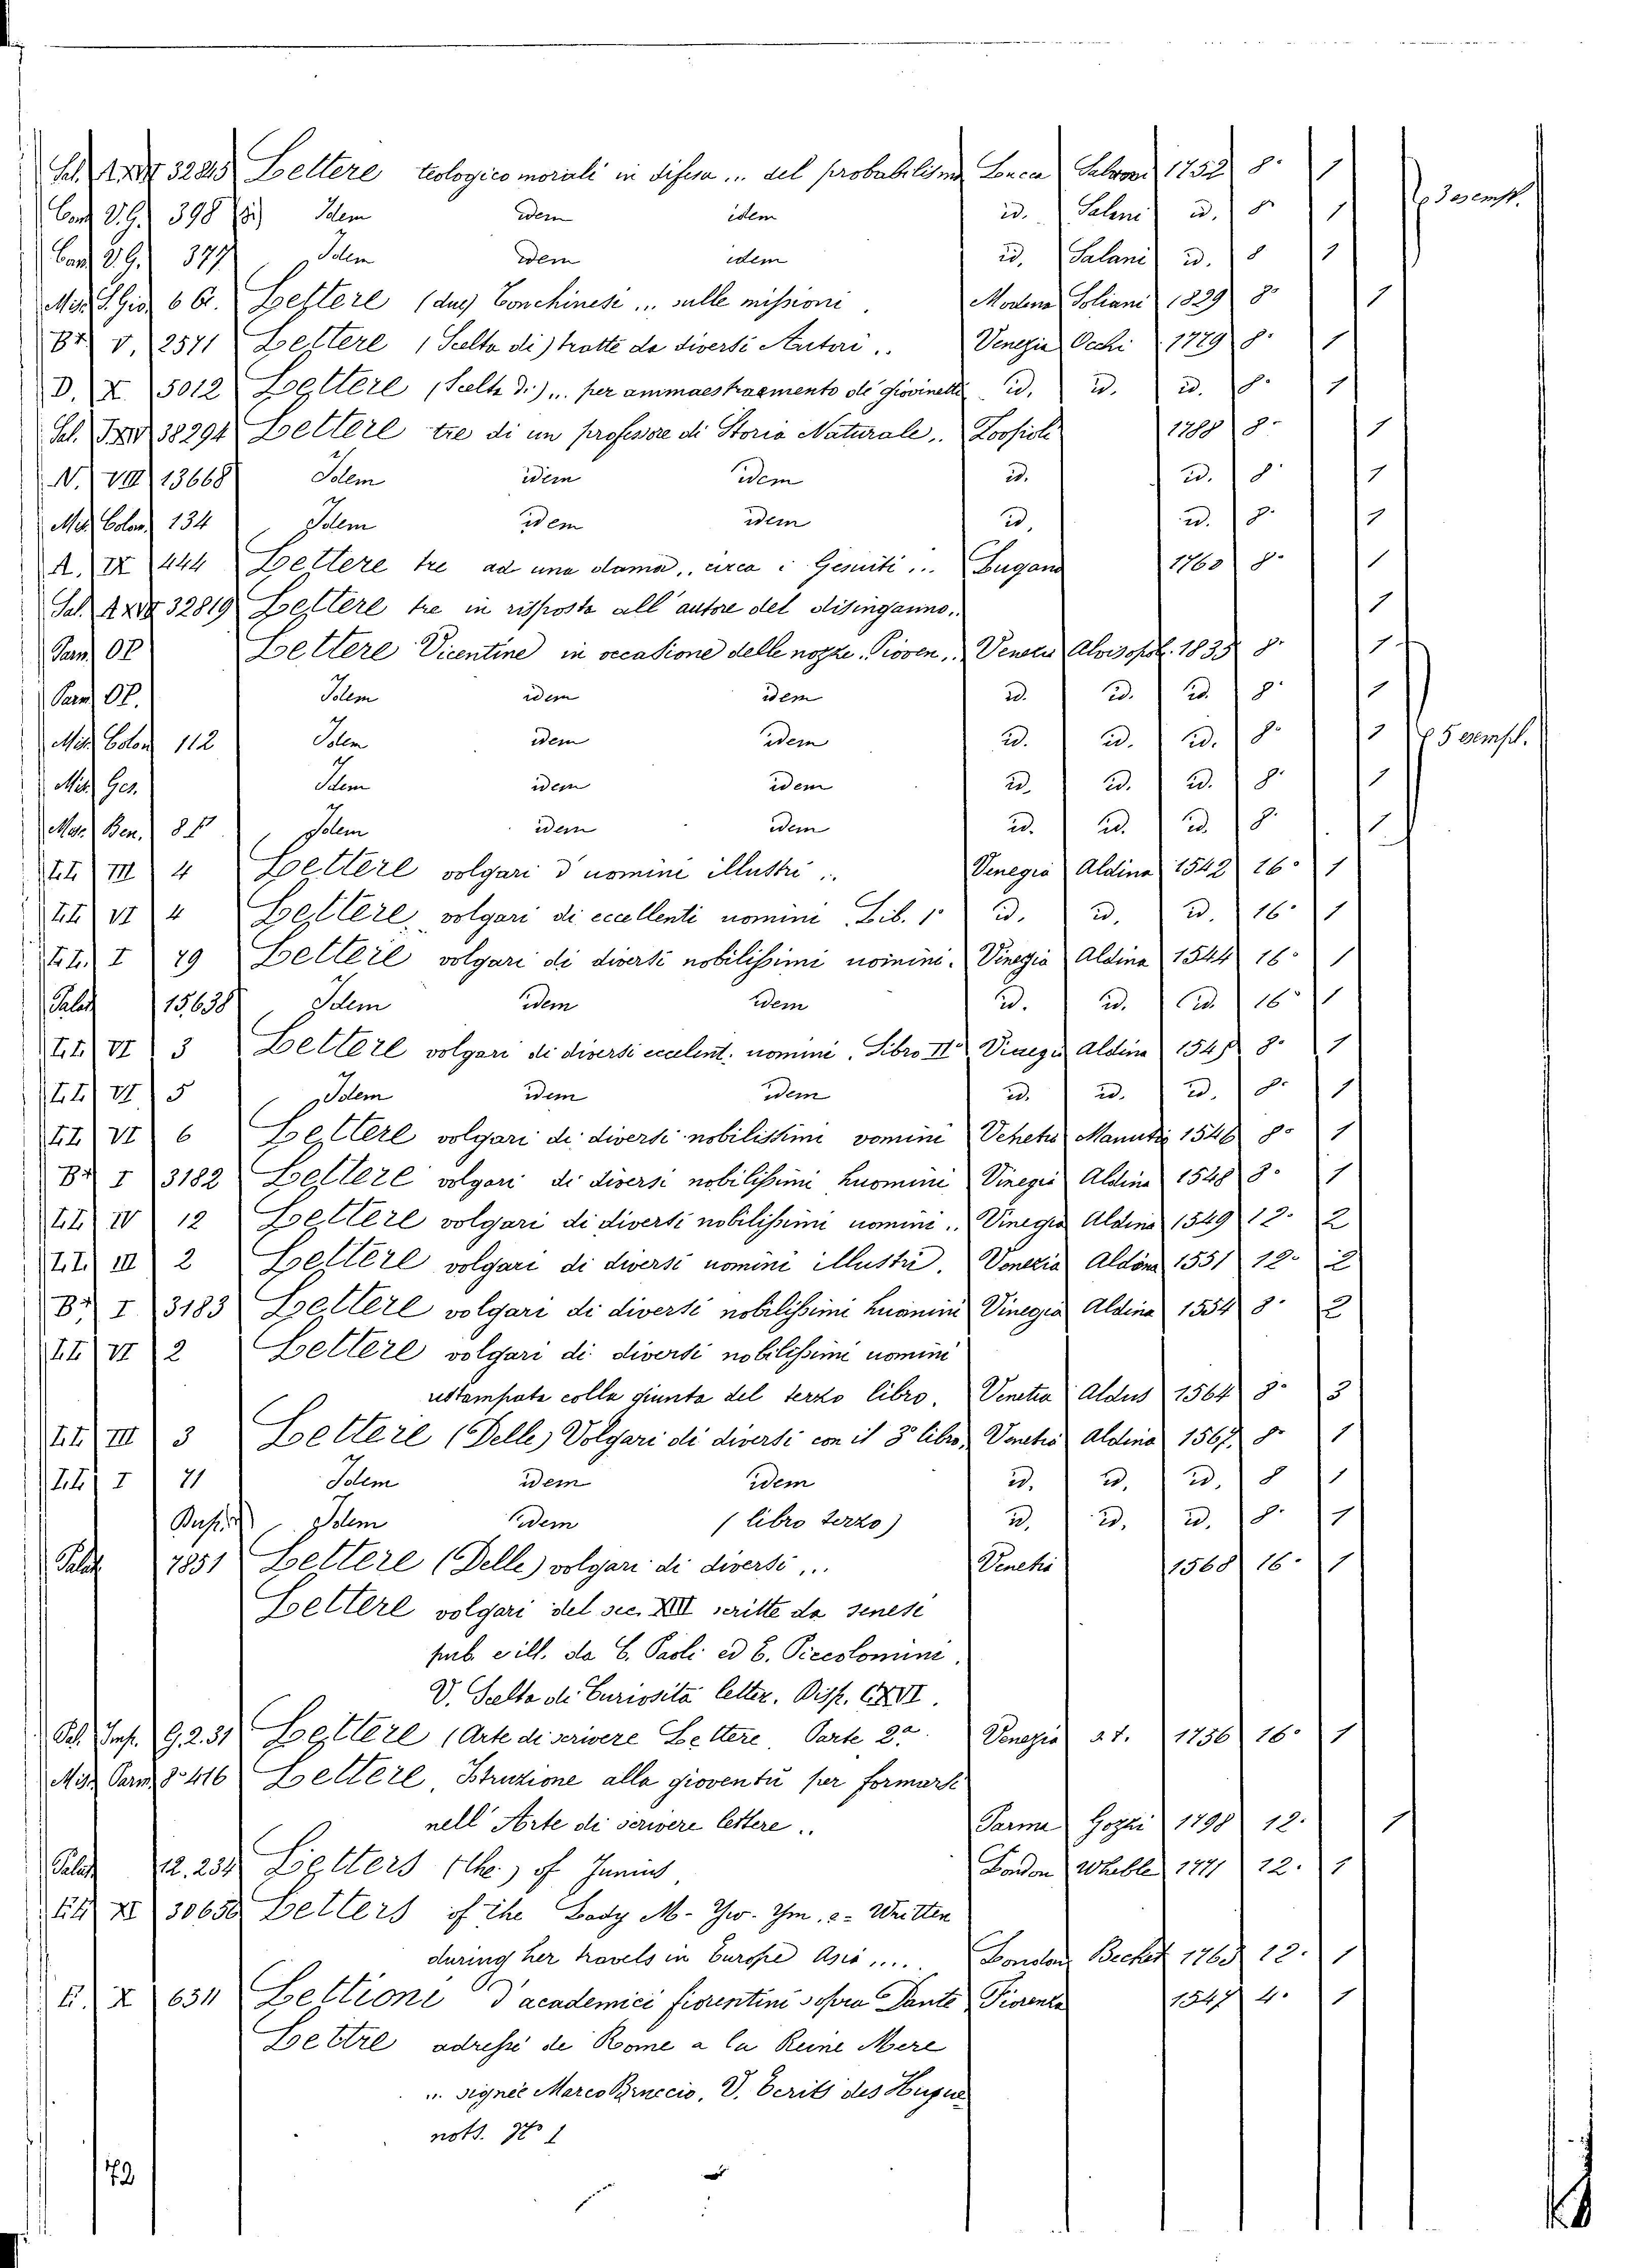 Lettere teologico morali in difesa ... del probabilismo Lucca 1752 8° 1
398 Idem idem idem id. Salani id. 8 1 3 esempl.
377 Idem idem idem id. Salani id. 8 1
Lettere (due) Conchinesi ... sulle missioni. Modena Soliani 1829 8° 1
Br. V. 2571 Lettere (Scelta di) tratte da diversi Autori .. Venezia Occhi 1779 8° 1
D. X. 5012 Lettere (Scelta di) ... per ammaestramento de' giovinetti id. id. id. 8° 1
38294 Lettere tre di un professore di Storia Naturale .. 1788 8° 1
N. VIII 13668 Idem idem idem id. id. 8° 1
Mis. Colon. 134 Idem idem idem id. id. 8° 1
A. IX 444 Lettere tre ad una dama, circa i Gesuiti ... Lugano 1760 8° 1
32819 Lettere tre in risposta all' autore del disinganno. 1
Parm. OP Lettere Vicentine in occasione delle nozze. Pioven .. Venezia Alvisopol. 1835 8° 1
Parm. OP. Idem idem idem id. id. id. 8° 1
Mis. Colon. 112 Idem idem idem id. id. id. 8° 1 5 esempl.
Mis. Ges. Idem idem idem id. id. id. 8° 1
Mor. Ben. Idem idem idem id. id. id. 8° 1
L.L. III 4 Lettere volgari d'uomini illustri .. Venegia Aldina 1542 16° 1
L.L. VI 4 Lettere volgari di eccellenti uomini Lib. 1° id. id. id. 16° 1
L.L. I 79 Lettere volgari di diversi nobilissimi uomini. Vinegia Aldina 1544 16° 1
Palat. 15638 Idem idem idem id. id. id. 16° 1
L.L. VI 3 Lettere volgari di diversi eccelent. uomini. Libro II° Vinegia Aldina 8° 1
L.L. VI 5 Idem idem idem id. id. id. 8° 1
L.L. VI 6 Lettere volgari di diversi nobilissimi uomini Manutii 1546 8° 1
Br. I 3182 Lettere volgari di diversi nobilissimi huomini Vinegia Aldina 1548 8° 1
L.L. IV 12 Lettere volgari di diversi nobilissimi uomini .. Vinegia Aldina 1549 12° 2
L.L. III 2 Lettere volgari di diversi uomini illustri. Venezia Aldina 1551 12° 2
Br. I 3183 Lettere volgari di diversi nobilissimi huomini Vinegia Aldina 1554 8° 2
L.L. VI 2 Lettere volgari di diversi nobilissimi uomini
ristampate colla giunta del terzo libro. Venetia Aldus 1564 8° 3
L.L. III 3 Lettere (Delle) Volgari di diversi con il 3° libro, Venetia Aldina 1567. 8° 1
L.L. I 71 Idem idem idem id. id. id. 8 1
Idem idem (libro terzo) id. id. id. 8° 1
Palat. 7851 Lettere (Delle) volgari di diversi ... Venetia 1568 16° 1
Lettere volgari del sec. XIII scritte da senesi
pub. e ill. da C. Paoli ed E. Piccolomini.
V. Scelta di Curiosità letter. Disp. CXVI.
Pal. Imp. G. 2. 31 Lettere (Arte di scrivere Lettere Parte 2a. Venezia a. t. 1756 16° 1
Mis. Parm. 8° 416 Lettere, Istruzione alla gioventù per formarsi
nell' Arte di scrivere lettere .. Parma Gozzi 1798 12° 1
Palat. 12.234 Letters (the) of Junius, London Wheble 1771 12° 1
XI 30656 Letters of the Lady M- Yw. Ym. e- Written
during her travels in Europe Asia .... London Becket 12° 1
X 6311 Lettioni d'academici fiorentini sopra Dante Fiorenza 1547 4° 1
Lettre adressé de Rome a la Reine Mere
... signée Marco Bruccio, V. Ecrits des Hugue
nots. No 1
72